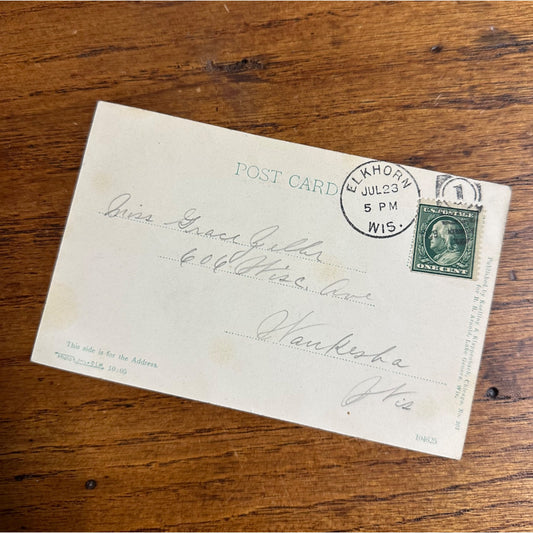 POST CARD
ELKHORN
JUL 23
5 PM
WIS.
1
U.S. POSTAGE
ONE CENT
Miss Grace
606 Wisc. Ave
Waukesha
Wis
This side is for the Address.
10,00
Published by Chicago, No. 102
for W. H. Arnold, Lake Geneva, Wis.
104625